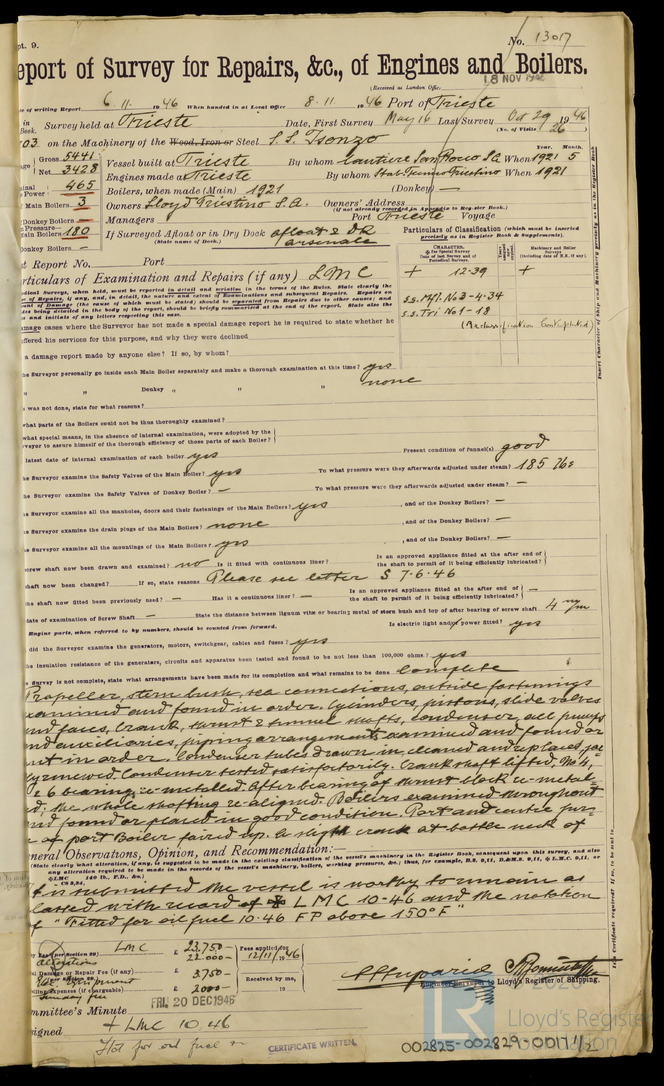 pt. 9.
No. 13017
eport of Survey for Repairs, &c., of Engines and Boilers.
(Received at London Office
18 NOV 1946
te of writing Report 6.11. 1946 When handed in at Local Office 8.11. 1946 Port of Trieste
in
Book.
Survey held at Trieste Date, First Survey May 16 Last Survey Oct 29 1946
(No. of Visits 26)
03 on the Machinery of the Wood, Iron or Steel S.S. Isonzo
Gross 5441
Net 3428
Vessel built at Trieste By whom Cantiere San Rocco S.A. When 1921 5
Year. Month.
Engines made at Trieste By whom Stab. Tecnico Triestino When 1921
Power 465
Boilers, when made (Main) 1921 (Donkey) —
Main Boilers 3
Owners Lloyd Triestino S.A. Owners' Address
(if not already recorded in Appendix to Register Book.)
Donkey Boilers —
Managers Port Trieste Voyage
Pressure—
ain Boilers 180
If Surveyed Afloat or in Dry Dock afloat & DD
(State name of Dock.) arsenale
Donkey Boilers —
Particulars of Classification (which must be inserted
precisely as in Register Book & Supplements).
CHARACTER.
Machinery and Boiler
Surveys
+ 12.39 +
S.S. Mfl. No 3-4-34
S.S. Tri No 1-18
(Reclassification Contemplated)
t Report No. Port
articulars of Examination and Repairs (if any) LMC
amage cases where the Surveyor has not made a special damage report he is required to state whether he
ffered his services for this purpose, and why they were declined
a damage report made by anyone else? If so, by whom?
he Surveyor personally go inside each Main Boiler separately and make a thorough examination at this time? yes
" " Donkey " " " none
was not done, state for what reasons?
what parts of the Boilers could not be thus thoroughly examined?
what special means, in the absence of internal examination, were adopted by the
rveyor to assure himself of the thorough efficiency of those parts of each Boiler?
latest date of internal examination of each boiler yes Present condition of funnel(s) good
he Surveyor examine the Safety Valves of the Main Boiler? yes To what pressure were they afterwards adjusted under steam? 185 lbs
he Surveyor examine the Safety Valves of Donkey Boiler? — To what pressure were they afterwards adjusted under steam? —
he Surveyor examine all the manholes, doors and their fastenings of the Main Boilers? yes , and of the Donkey Boilers? —
he Surveyor examine the drain plugs of the Main Boilers? none , and of the Donkey Boilers? —
he Surveyor examine all the mountings of the Main Boilers? yes , and of the Donkey Boilers? —
crew shaft now been drawn and examined? no Is it fitted with continuous liner? Is an approved appliance fitted at the after end of
the shaft to permit of it being efficiently lubricated?
haft now been changed? If so, state reasons Please see letter S 7.6.46
he shaft now fitted been previously used? — Has it a continuous liner? — Is an approved appliance fitted at the after end of
the shaft to permit of it being efficiently lubricated? —
date of examination of Screw Shaft — State the distance between lignum vitæ or bearing metal of stern bush and top of after bearing of screw shaft 4 m/m
Engine parts, when referred to by numbers, should be counted from forward. Is electric light and/or power fitted? yes
did the Surveyor examine the generators, motors, switchgear, cables and fuses? yes
he insulation resistance of the generators, circuits and apparatus been tested and found to be not less than 100,000 ohms? yes
e Survey is not complete, state what arrangements have been made for its completion and what remains to be done complete
Propeller, stern bush, sea connections, outside fastenings
xamined and found in order. Cylinders, pistons, slide valves
nd faces, Crank, thrust & tunnel shafts, condenser, all pumps
nd auxiliaries, piping arrangements examined and found or
ut in order. Condenser tubes drawn in, cleaned and replaced,
renewed. Condenser tested satisfactorily. Crankshaft lifted, No 4,
& 6 bearings re-metalled. After bearing of thrust block re-metal
ed; the whole shafting re-aligned. Boilers examined throughout
nd found or placed in good condition. Port and centre fur-
of port Boiler faired up. A slight crack at bottle neck of
neral Observations, Opinion, and Recommendation:—
(State clearly what alteration, if any, is suggested to be made in the existing classification of the vessel's machinery in the Register Book, consequent upon this survey, and also
t is submitted the vessel is worthy to remain as
classed with record of LMC 10-46 and the notation
of "Fitted for oil fuel 10.46 F.P above 150°F"
LMC £ 23,750—
alterations £ 22.000—
al Damage or Repair Fee (if any) £ 3,750—
elling Expenses (if chargeable) £ 2000—
Sunday fee
Fees applied for
12/11/1946
Received by me,
19
Lloyd's Register of Shipping.
FRI. 20 DEC 1946
mmittee's Minute
signed + LMC 10.46
CERTIFICATE WRITTEN.
Lloyd's Register
002825-002829-0017 1/2